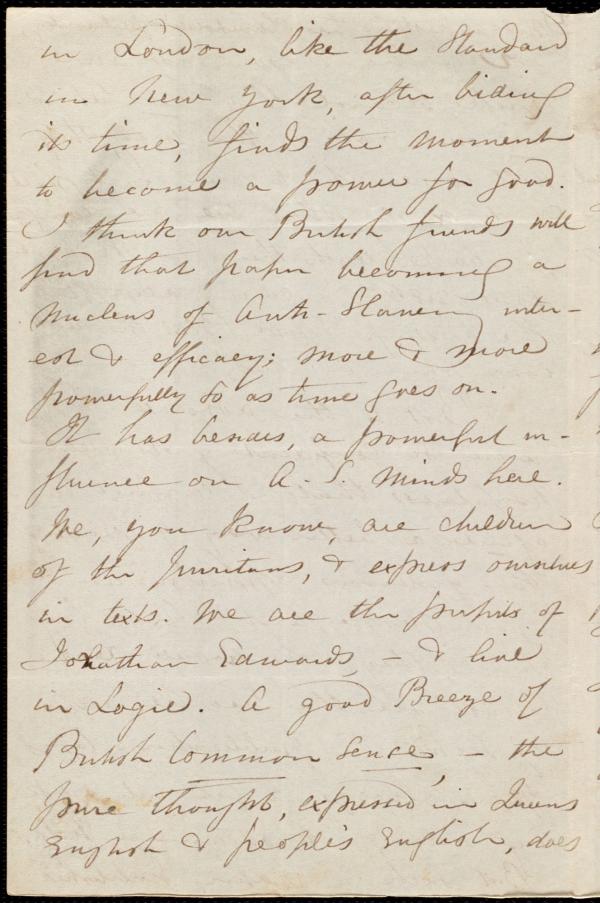 in London, like the Standard
in New York, after biding
its time, finds the moment
to become a power for good.
I think our British friends will
find that paper becoming a
nucleus of Anti-Slavery inter-
est & efficacy; more & more
powerfully so as time goes on.
It has besides, a powerful in-
fluence on A. S. minds here.
We, you know, are children
of the Puritans, & express ourselves
in texts. We are the pupils of
Jonathan Edwards, - & live
in Logic. A good Breeze of
British Common Sense, - the
pure thought, expressed in Queens
English & people's English, does